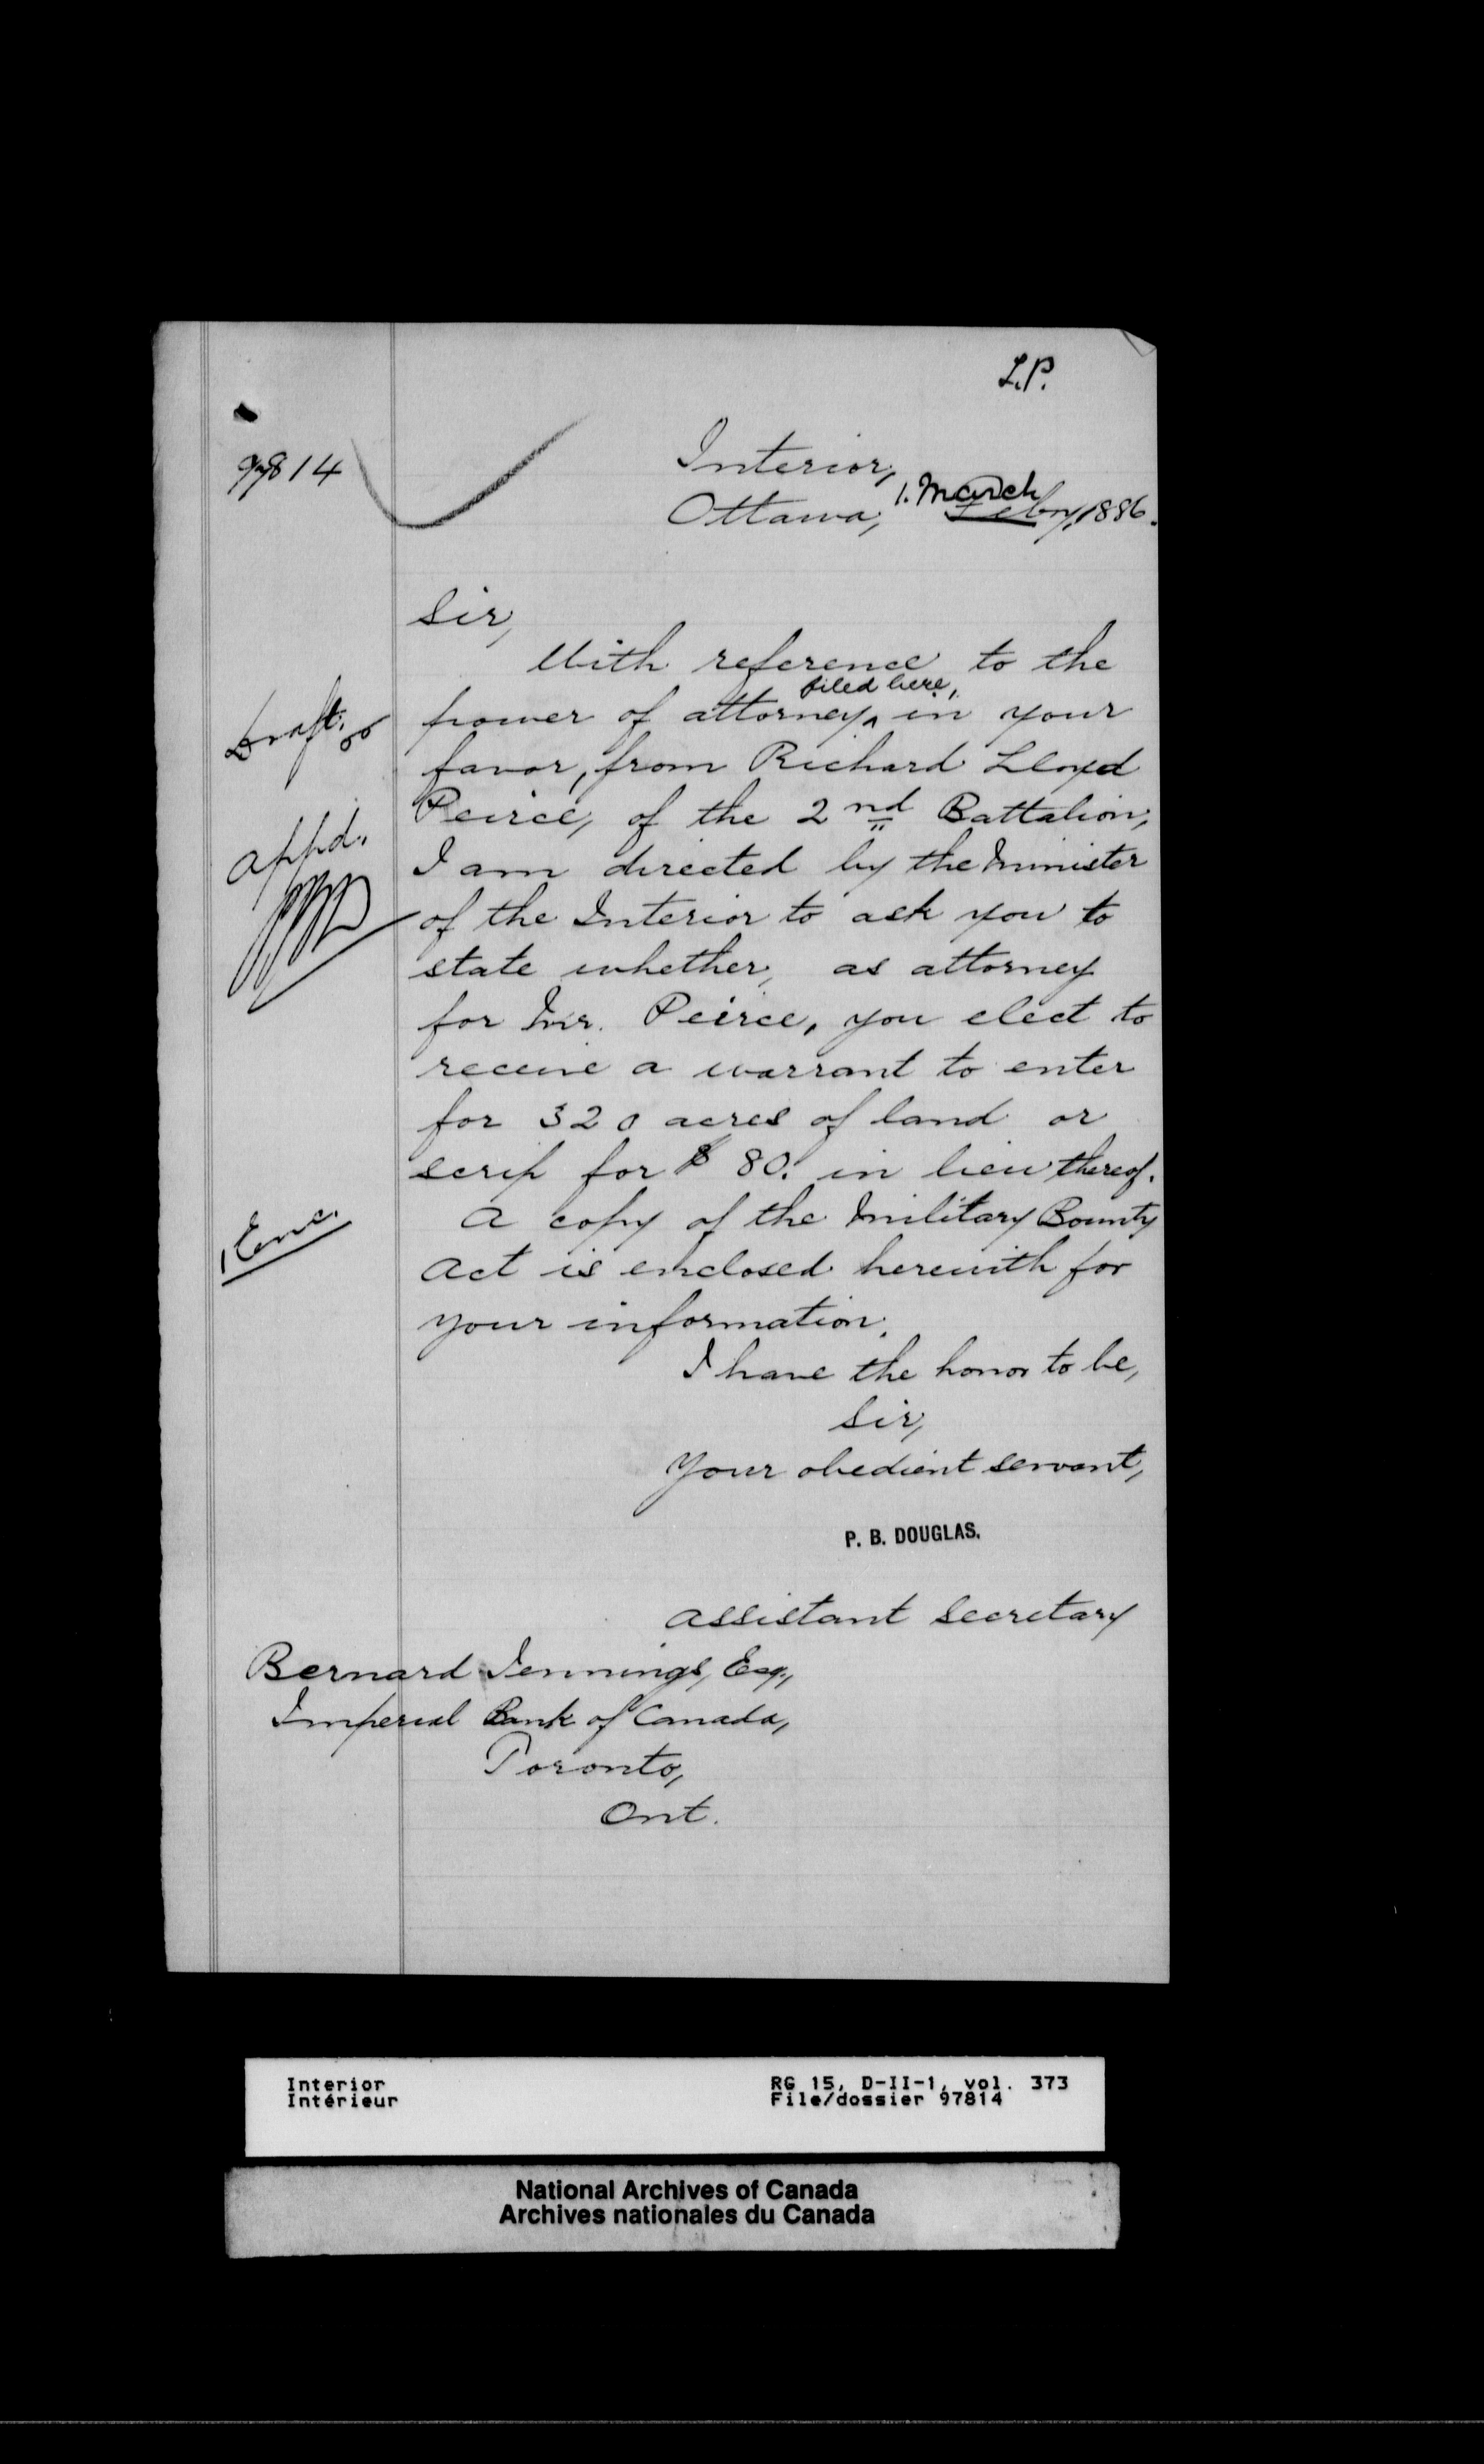 L.P.
97814
Interior,
1. March
Ottawa, Febry, 1886.
Sir,
With reference to the
filed here,
power of attorney^ in your
favor, from Richard Lloyd
Peirce, of the 2nd Battalion,
I am directed by the Minister
of the Interior to ask you to
state whether, as attorney
for Mr. Peirce, you elect to
receive a warrant to enter
for 320 acres of land or
scrip for $ 80. in lieu thereof.
A copy of the Military Bounty
Act is enclosed herewith for
your information.
I have the honor to be,
Sir,
Your obedient servant,
P. B. DOUGLAS.
Assistant Secretary
Bernard Jennings, Esq.,
Imperial Bank of Canada,
Toronto,
Ont.
Draft.
Appd.
1 Enc.
Interior
Intérieur
RG 15, D-II-1, vol. 373
File/dossier 97814
National Archives of Canada
Archives nationales du Canada